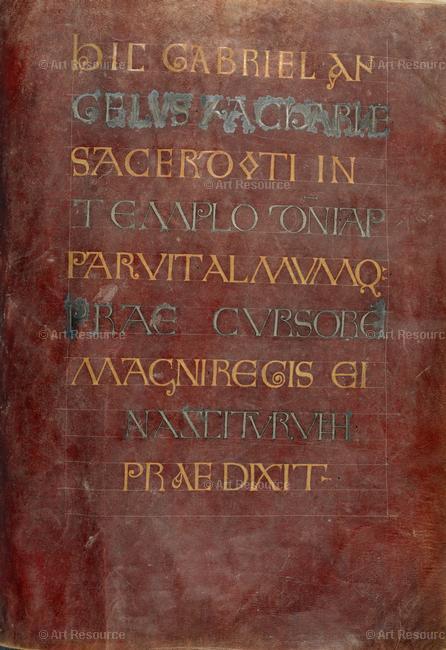 hIC GABRIEL AN
GELUS ZACHARIAE
SACERDOTI IN
TEMPLO DNI AP
PARVIT ALMVMQ:
PRAE CVRSORE
MAGNI REGIS EI
NASCITVRVM
PRAEDIXIT
© Art Resource
© Art Resource
© Art Resource
© Art Resource
© Art Resource
© Art Resource
© Art Resource
© Art Resource
© Art Resource
© Art Resource
© Art Resource